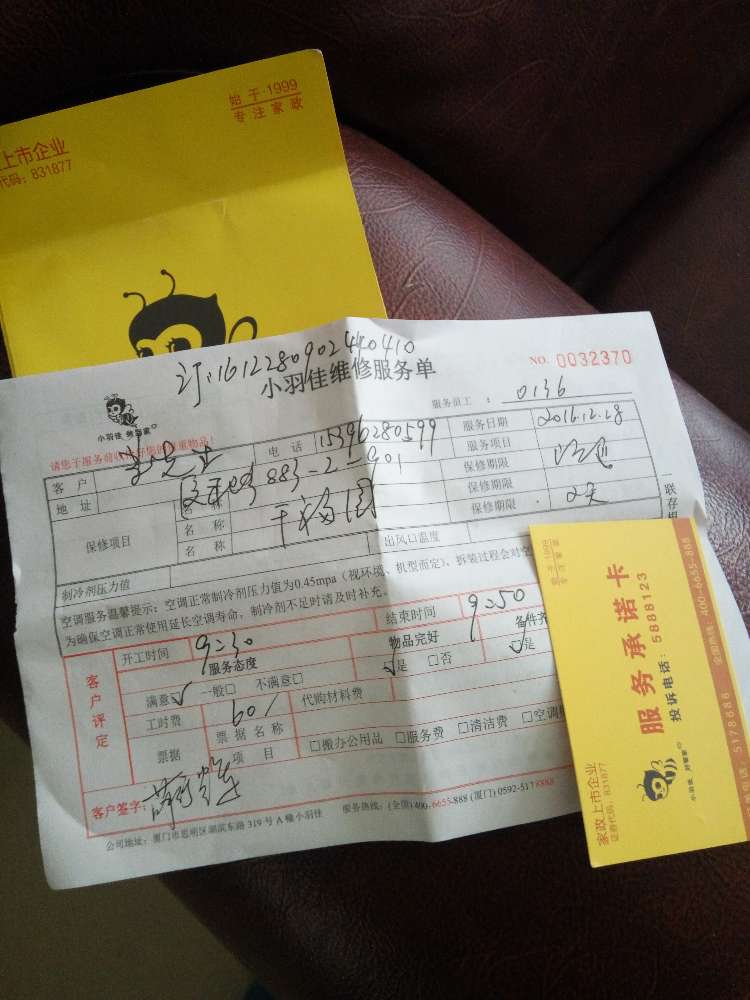 始于·1999
专注家政
上市企业
代码：831877
订：161228090244410410
小羽佳维修服务单
NO. 0032370
小羽佳 好管家
服务员工： 0136
客户
电话 15396280599
服务日期 2016.12.28
地址
883-2-901
服务项目
保修项目
名称
保修期限
名称
保修期限 2天
名称
保修期限
制冷剂压力值
出风口温度
空调服务温馨提示：空调正常制冷剂压力值为0.45mpa（视环境、机型而定），拆装过程会对空
为确保空调正常使用延长空调寿命，制冷剂不足时请及时补充。
客户评定
开工时间 9:30
结束时间 9:50
服务态度
物品完好
备件齐
满意☑ 一般□ 不满意□
√是 □否
√是
工时费 60/
代购材料费
票据
票据名称
项目
□搬办公用品 □服务费 □清洁费 □空调
客户签字：
公司地址：厦门市思明区湖滨东路319号A幢小羽佳
服务热线：(全国)400-6655-888 (厦门)0592-5178888
联存根
始于·1999
专注家政
服务承诺卡
投诉电话：5888123
全国热线：400-6655-888
5178888
小羽佳 好管家
家政上市企业
证券代码：831877